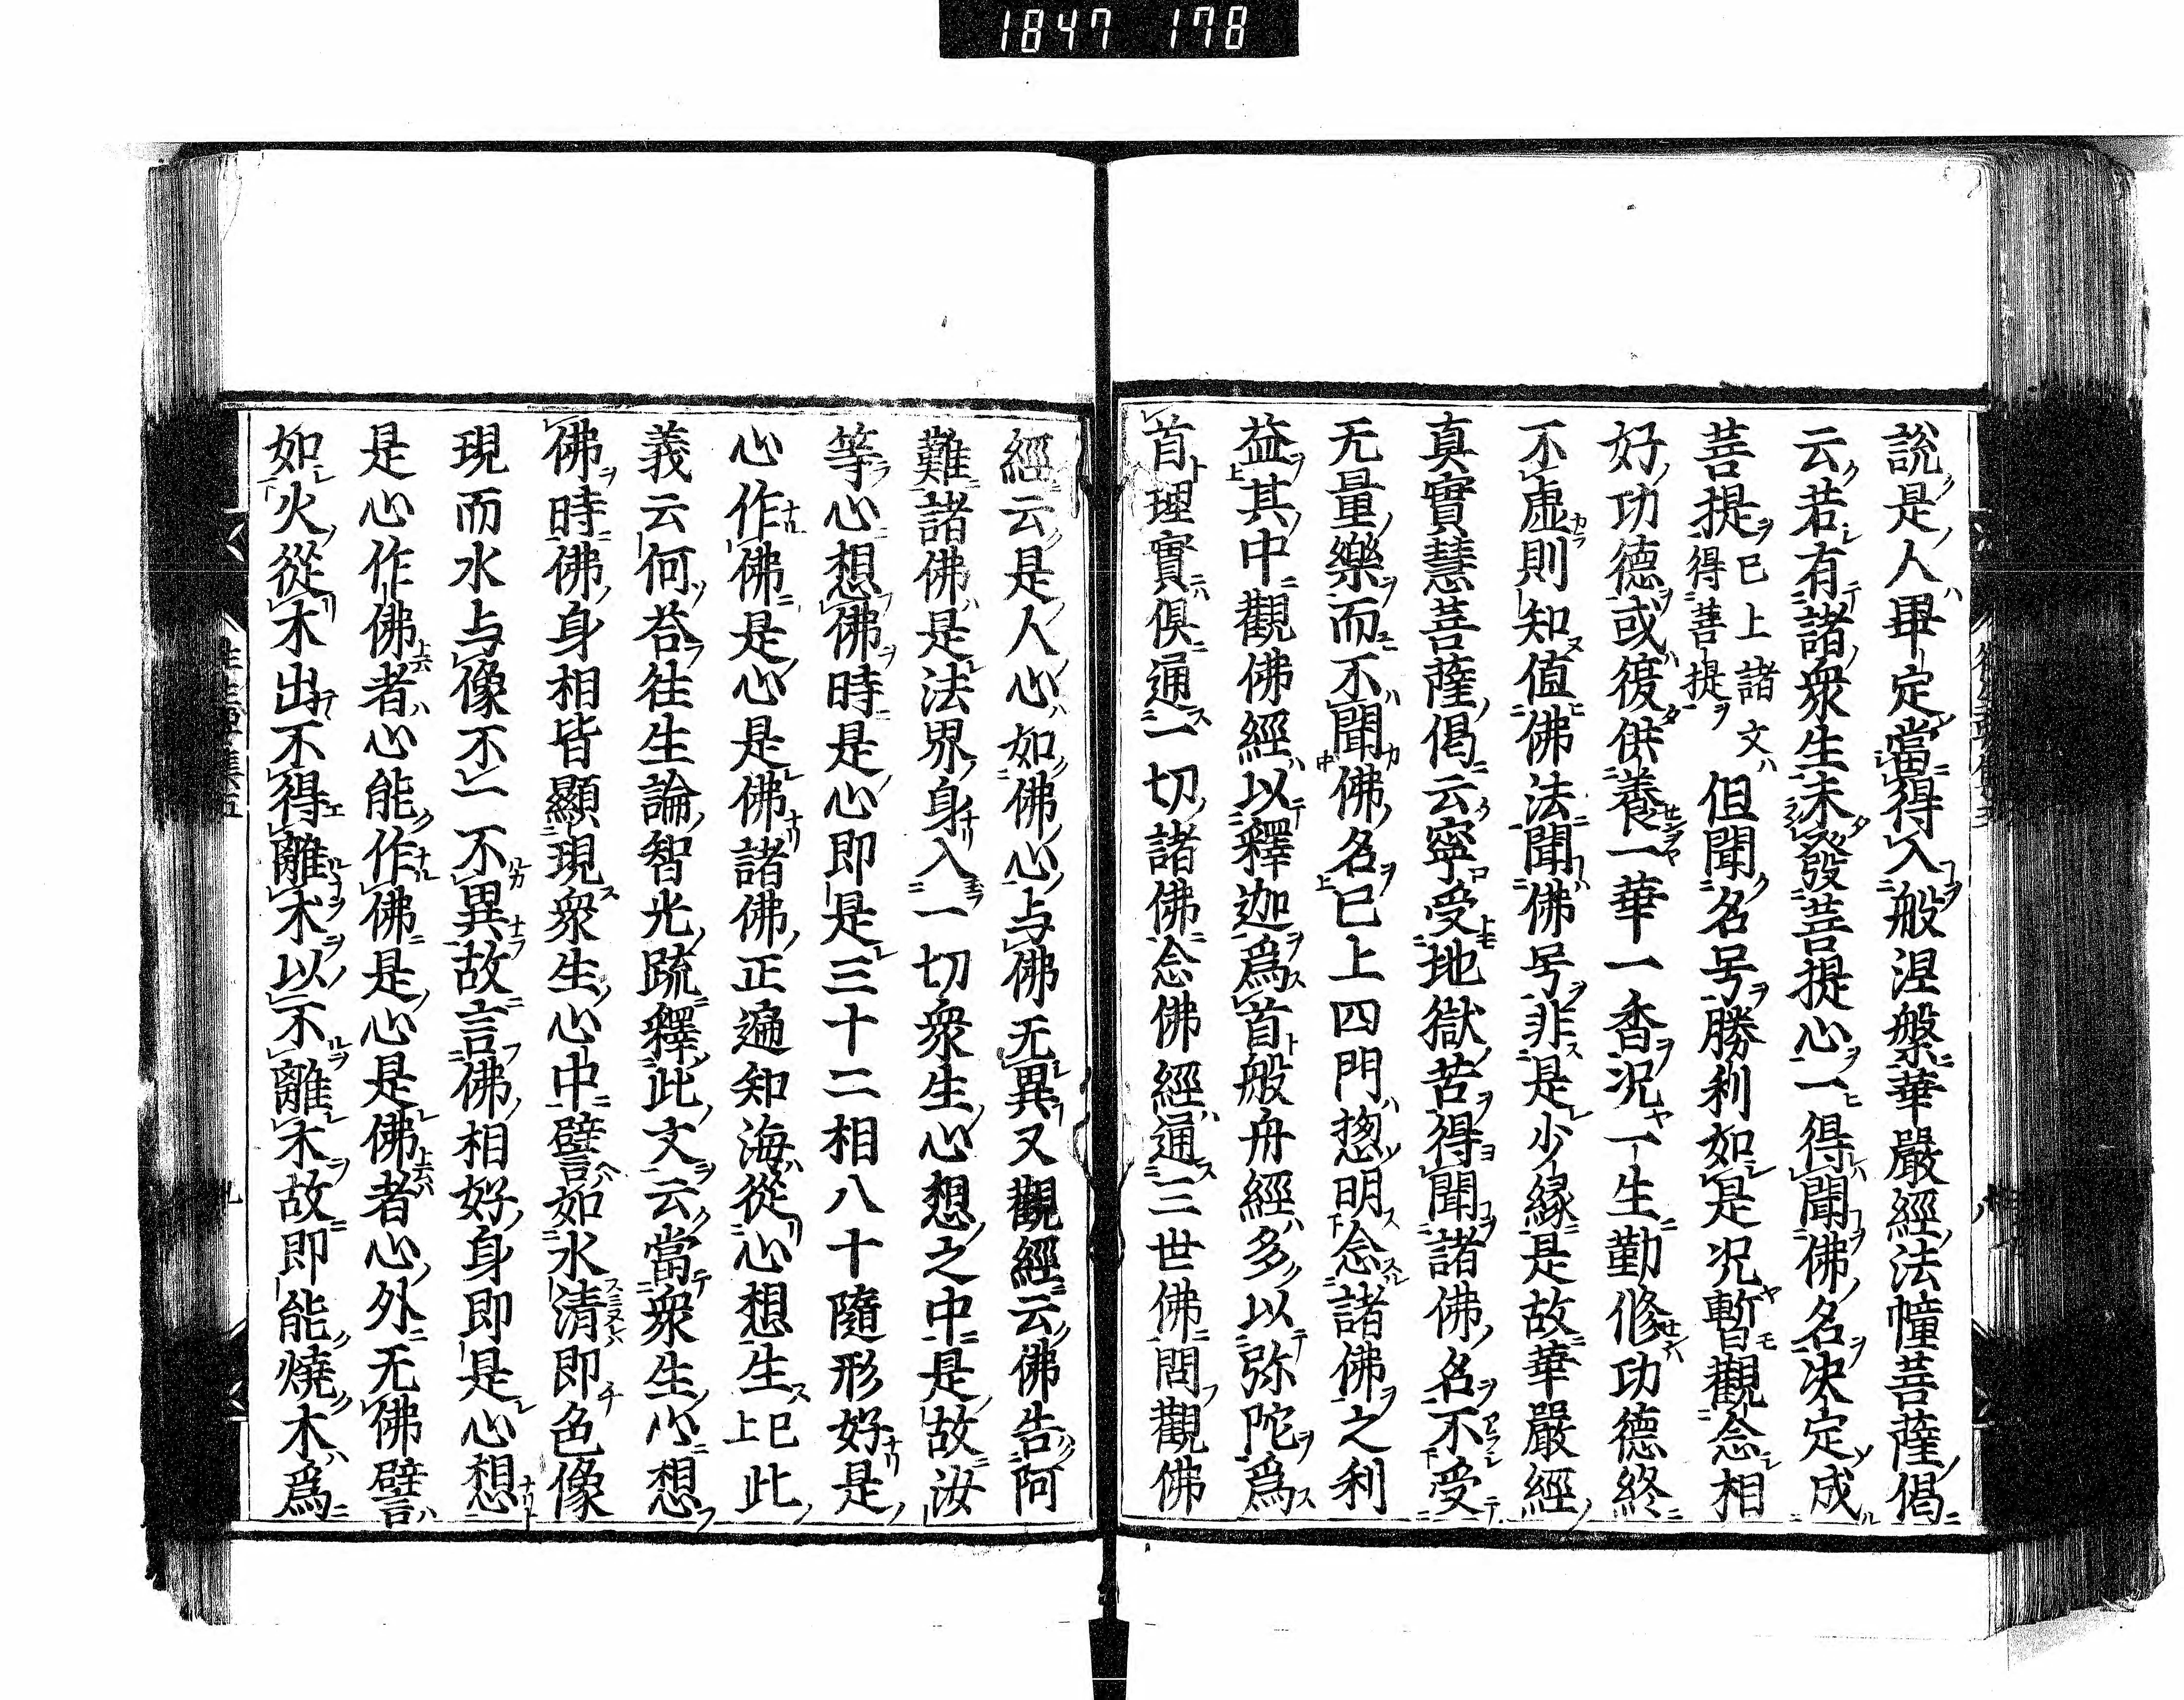 1847 178
説是人畢定當得入般涅槃華嚴經法幢菩薩偈
云若有諸衆生未發菩提心一得聞佛名決定成
菩提已上諸文得菩提但聞名号勝利如是况暫觀念相
好功德或復供養一華一香况一生勤修功德終
不虚則知値佛法聞佛号非是少縁是故華嚴經
真實慧菩薩偈云寧受地獄苦得聞諸佛名不受
无量樂而不聞佛名已上四門揔明念諸佛之利
益其中觀佛經以釋迦爲首般舟經多以弥陀爲
首理實俱通一切諸佛念佛經通三世佛問觀佛
經云是人心如佛心与佛无異又觀經云佛告阿
難諸佛是法界身入一切衆生心想之中是故汝
等心想佛時是心即是三十二相八十隨形好是
心作佛是心是佛諸佛正遍知海從心想生已上此
義云何荅往生論智光疏釋此文云當衆生心想
佛時佛身相皆顯現衆生心中譬如水清即色像
現而水与像不一不異故言佛相好身即是心想
是心作佛者心能作佛是心是佛者心外无佛譬
如火從木出不得離木以不離木故即能燒木爲